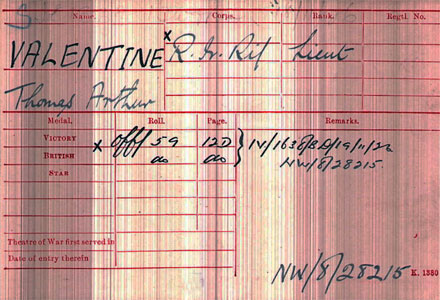 Name. Corps. Rank. Regtl. No.
VALENTINE x R. Ir. Rif Lieut
Thomas Arthur
Medal. Roll. Page. Remarks.
VICTORY x Off 59 120
BRITISH do do NW/8/28215
STAR
Theatre of War first served in
Date of entry therein
K. 1380
NW/8/28215